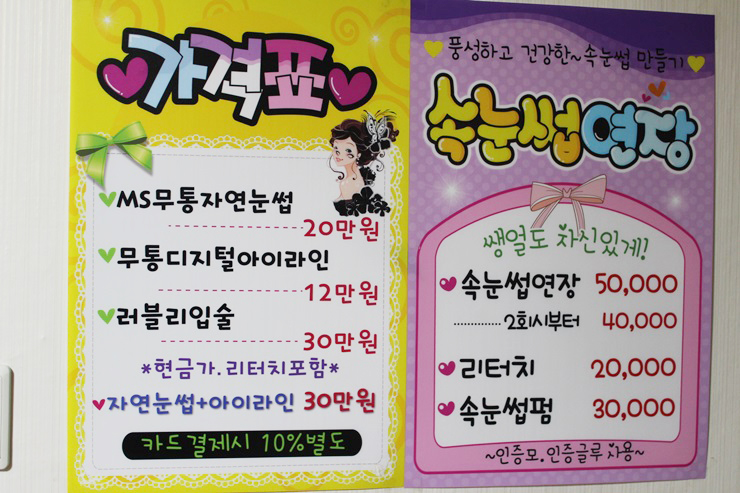 가격표
MS무통자연눈썹
20만원
무통디지털아이라인
12만원
러블리입술
30만원
*현금가.리터치포함*
자연눈썹+아이라인 30만원
카드결제시 10%별도
풍성하고 건강한~속눈썹 만들기
속눈썹연장
쌩얼도 자신있게!
속눈썹연장 50,000
2회시부터 40,000
리터치 20,000
속눈썹펌 30,000
~인증모.인증글루 사용~